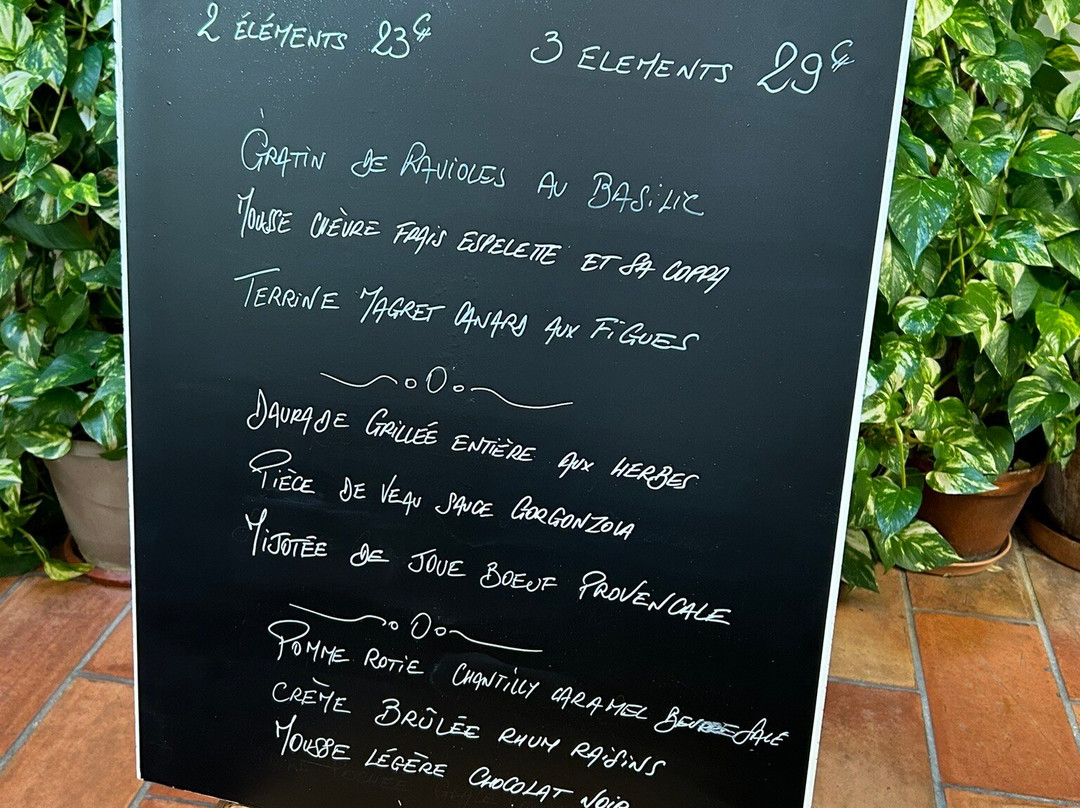 2 ÉLÉMENTS 23€
3 ELEMENTS 29€
GRATIN DE RAVIOLES AU BASILIC
MOUSSE CHÈVRE FRAIS ESPELETTE ET SA COPPA
TERRINE MAGRET CANARD AUX FIGUES
DAURADE GRILLÉE ENTIÈRE AUX HERBES
PIÈCE DE VEAU SAUCE GORGONZOLA
MIJOTÉE DE JOUE BOEUF PROVENCALE
POMME ROTIE CHANTILLY CARAMEL BEURRE SALÉ
CRÈME BRÛLÉE RHUM RAISINS
MOUSSE LÉGÈRE CHOCOLAT NOIR